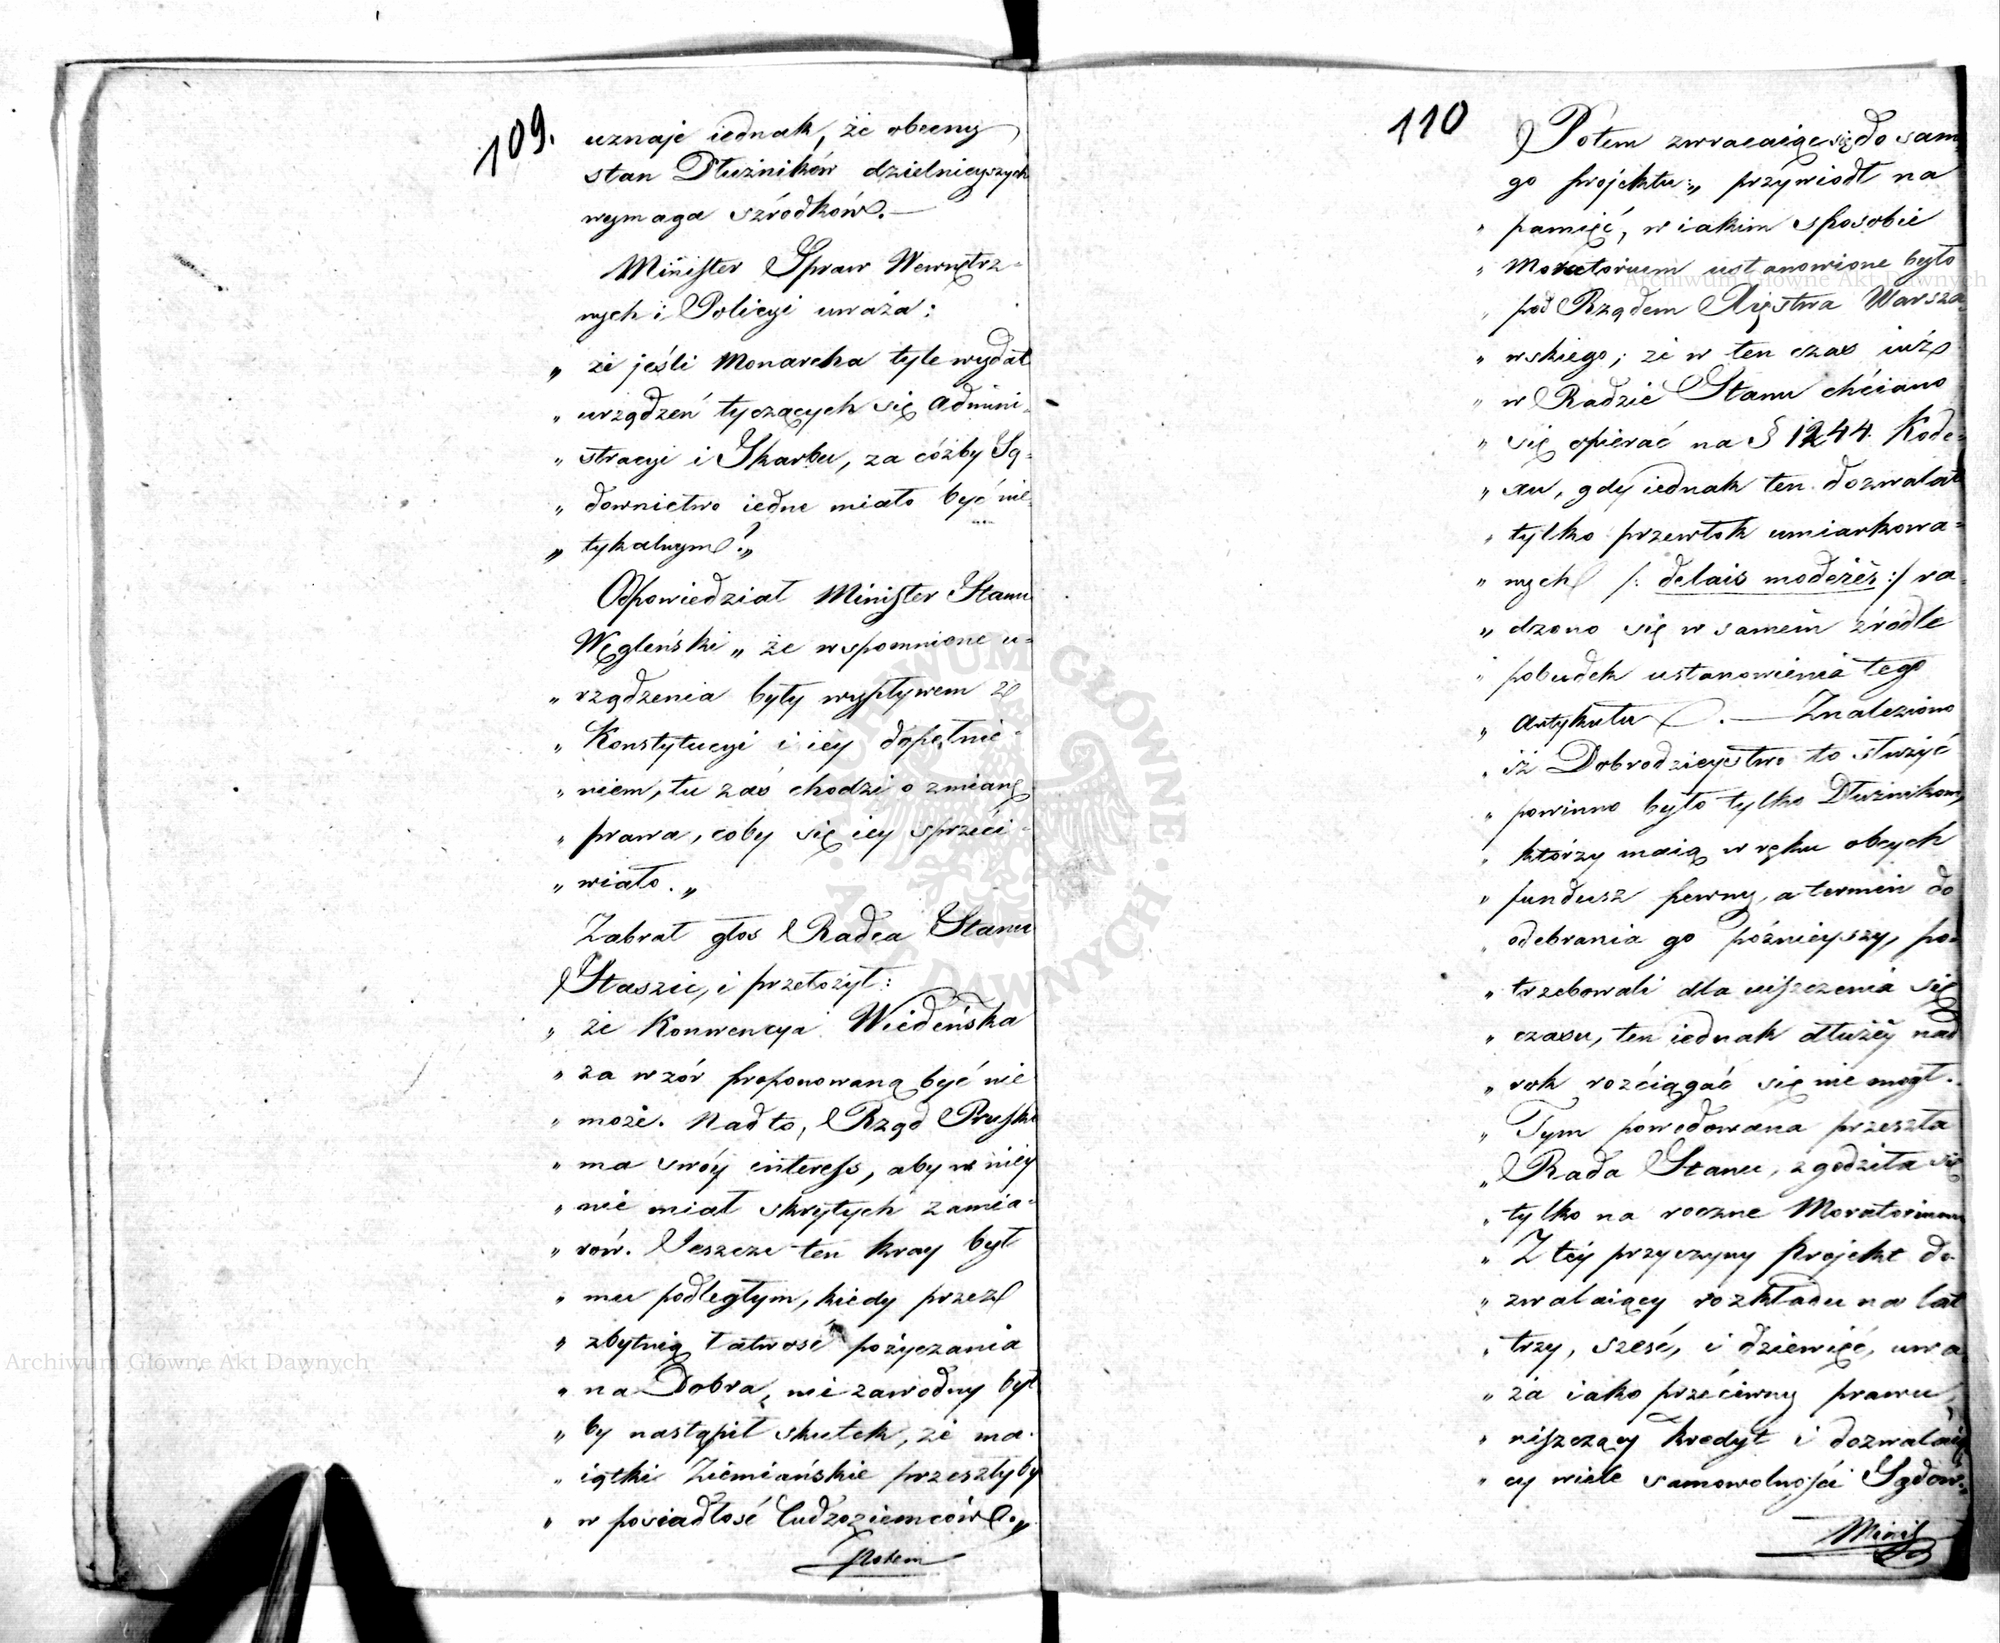 109.
uznaje iednak, że obecny
stan Dłużników dzielnieyszych
wymaga szrodków. —
Minister Spraw Wewnętrz-
nych i Policyi uważa:
„ że jeśli Monarcha tyle wydał
„ urządzeń tyczących się Admini-
„ stracyi i Skarbu, za cóżby Są-
„ downictwo iedne miało być nie-
„ tykalnym?„
Odpowiedział Minister Stanu
Węgleński „ że wspomnione u-
„ rządzenia były wypływem z
„ Konstytucyi i iey dopełnie-
„ niem, tu zaś chodzi o zmianę
„ prawa, coby się iey sprzeci-
„ wiało.„
Zabrał głos Radca Stanu
Staszic, i przełożył:
„ że Konwencya Wiedeńska
„ za wzór proponowaną być nie
„ może. Nadto, Rząd Pruski
„ ma swóy interess, aby w niey
„ nie miał skrytych zamia-
„ rów. Jeszcze ten kray był
„ mu podległym, kiedy przez
„ zbytnią łatwość pożyczania
„ na Dobra, niezawodny był
„ by nastąpił skutek, że ma-
„ iątki Ziemiańskie przeszłyby
„ w posiadłość Cudzoziemców.„
Potem
110
Potem zwracaiąc się do same
go projektu: „ przywiódł na
„ pamięć, w iakim sposobie
„ Moratorium ustanowione było
„ pod Rządem Xięstwa Warsza-
„ wskiego; że w ten czas iuż
„ w Radzie Stanu chciano
„ się opierać na § 1244. Kode-
„ xu, gdy iednak ten dozwalał
„ tylko przewłok umiarkowa-
„ nych /: delais moderès :/ ra-
„ dzono się w samem źródle
„ pobudek ustanowienia tego
„ Artykułu. — Znaleziono
„ iż Dobrodzieystwo to służyć
„ powinno było tylko Dłużnikom,
„ którzy maią w ręku obcych
„ fundusz pewny, a termin do
„ odebrania go późnieyszy, po-
„ trzebowali dla uiszczenia się
„ czasu, ten iednak dłużéy nad
„ rok rozciągać się nie mógł.
„ Tym powodowana przeszła
„ Rada Stanu, zgodziła się
„ tylko na roczne Moratorium
„ Z téy przyczyny Projekt do-
„ zwalaiący rozkładu na lat
„ trzy, sześć, i dziewięć, uwa
„ ża iako przeciwny prawu,
„ niszczący kredyt i dozwalaią
„ cy wiele samowolności Sądow.„
Minis
Archiwum Główne Akt Dawnych
Archiwum Główne Akt Dawnych
ARCHIWUM GŁÓWNE AKT DAWNYCH